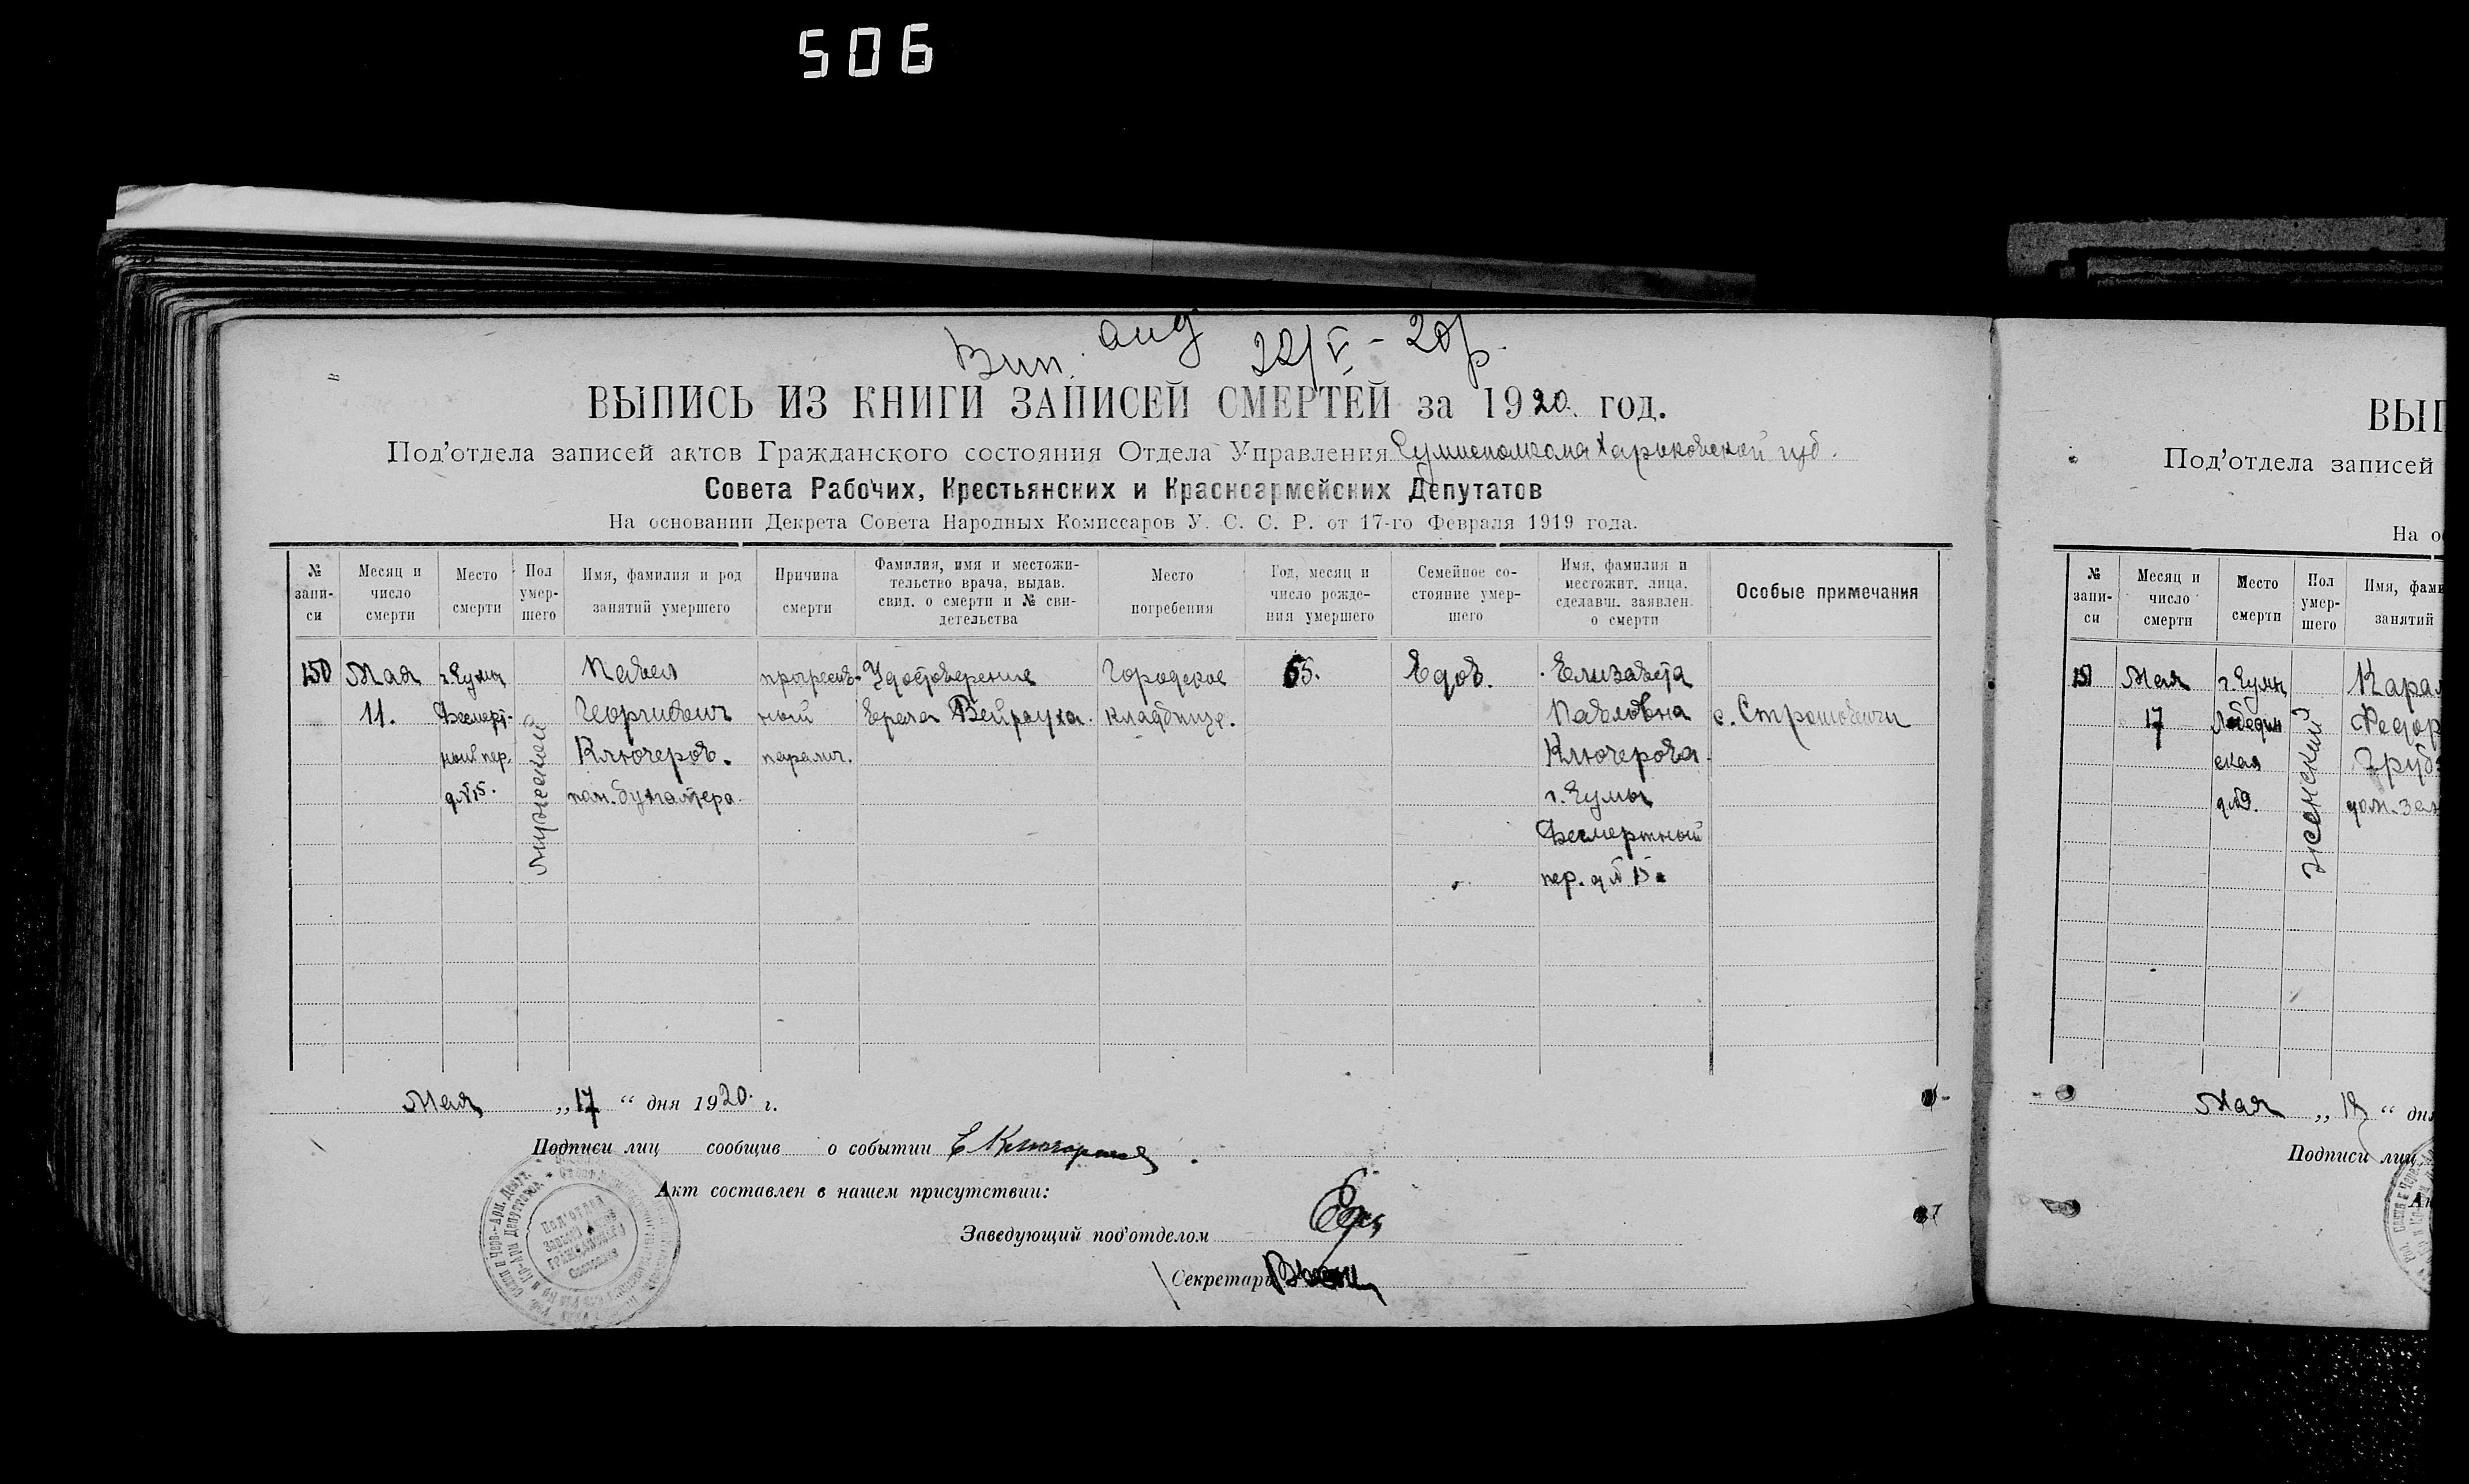 506
Вип. 22/V - 20 р.
ВЫПИСЬ ИЗ КНИГИ ЗАПИСЕЙ СМЕРТЕЙ за 1920. год.
Под’отдела записей актов Гражданского состояния Отдела Управления Сумисполкома Харьковской губ.
Совета Рабочих, Крестьянских и Красноармейских Депутатов
На основании Декрета Совета Народных Комиссаров У. С. С. Р. от 17-го Февраля 1919 года.
№ запи- си
Месяц и число смерти
Место смерти
Пол умер- шего
Имя, фамилия и род занятий умершего
Причина смерти
Фамилия, имя и местожи- тельство врача, выдав. свид. о смерти и № сви- детельства
Место погребения
Год, месяц и число рожде- ния умершего
Семейное со- стояние умер- шего
Имя, фамилия и местожит. лица, сделавш. заявлен. о смерти
Особые примечания
150 Мая г. Сумы Павел прогрессив- Удостоверение Городское 65. Вдов. Елизавета
11. Бесмерт- Георгиевич ный врача Вейрауха. кладбище. Павловна
ный пер. Ключеров. паралич. Ключерова.
д. № 15. пом. бухгалтера. г. Сумы
мужеский
Бесмертный
пер. д. № 15.
Мая „ 17 “ дня 1920. г.
Подписи лиц сообщив о событии Е Ключерова
Акт составлен в нашем присутствии:
Заведующий под’отделом
Секретарь
Под’отдел
Записей Актов
Гражданского
Состояния
ВЫП
Под’отдела записей
На ос
№ запи- си
Месяц и число смерти
Место смерти
Пол умер- шего
Имя, фами
занятий
151 Мая г. Сумы
17 Лебедин
ская
д. № 9.
женский
Мая „ 18 “ дня
Подписи лиц